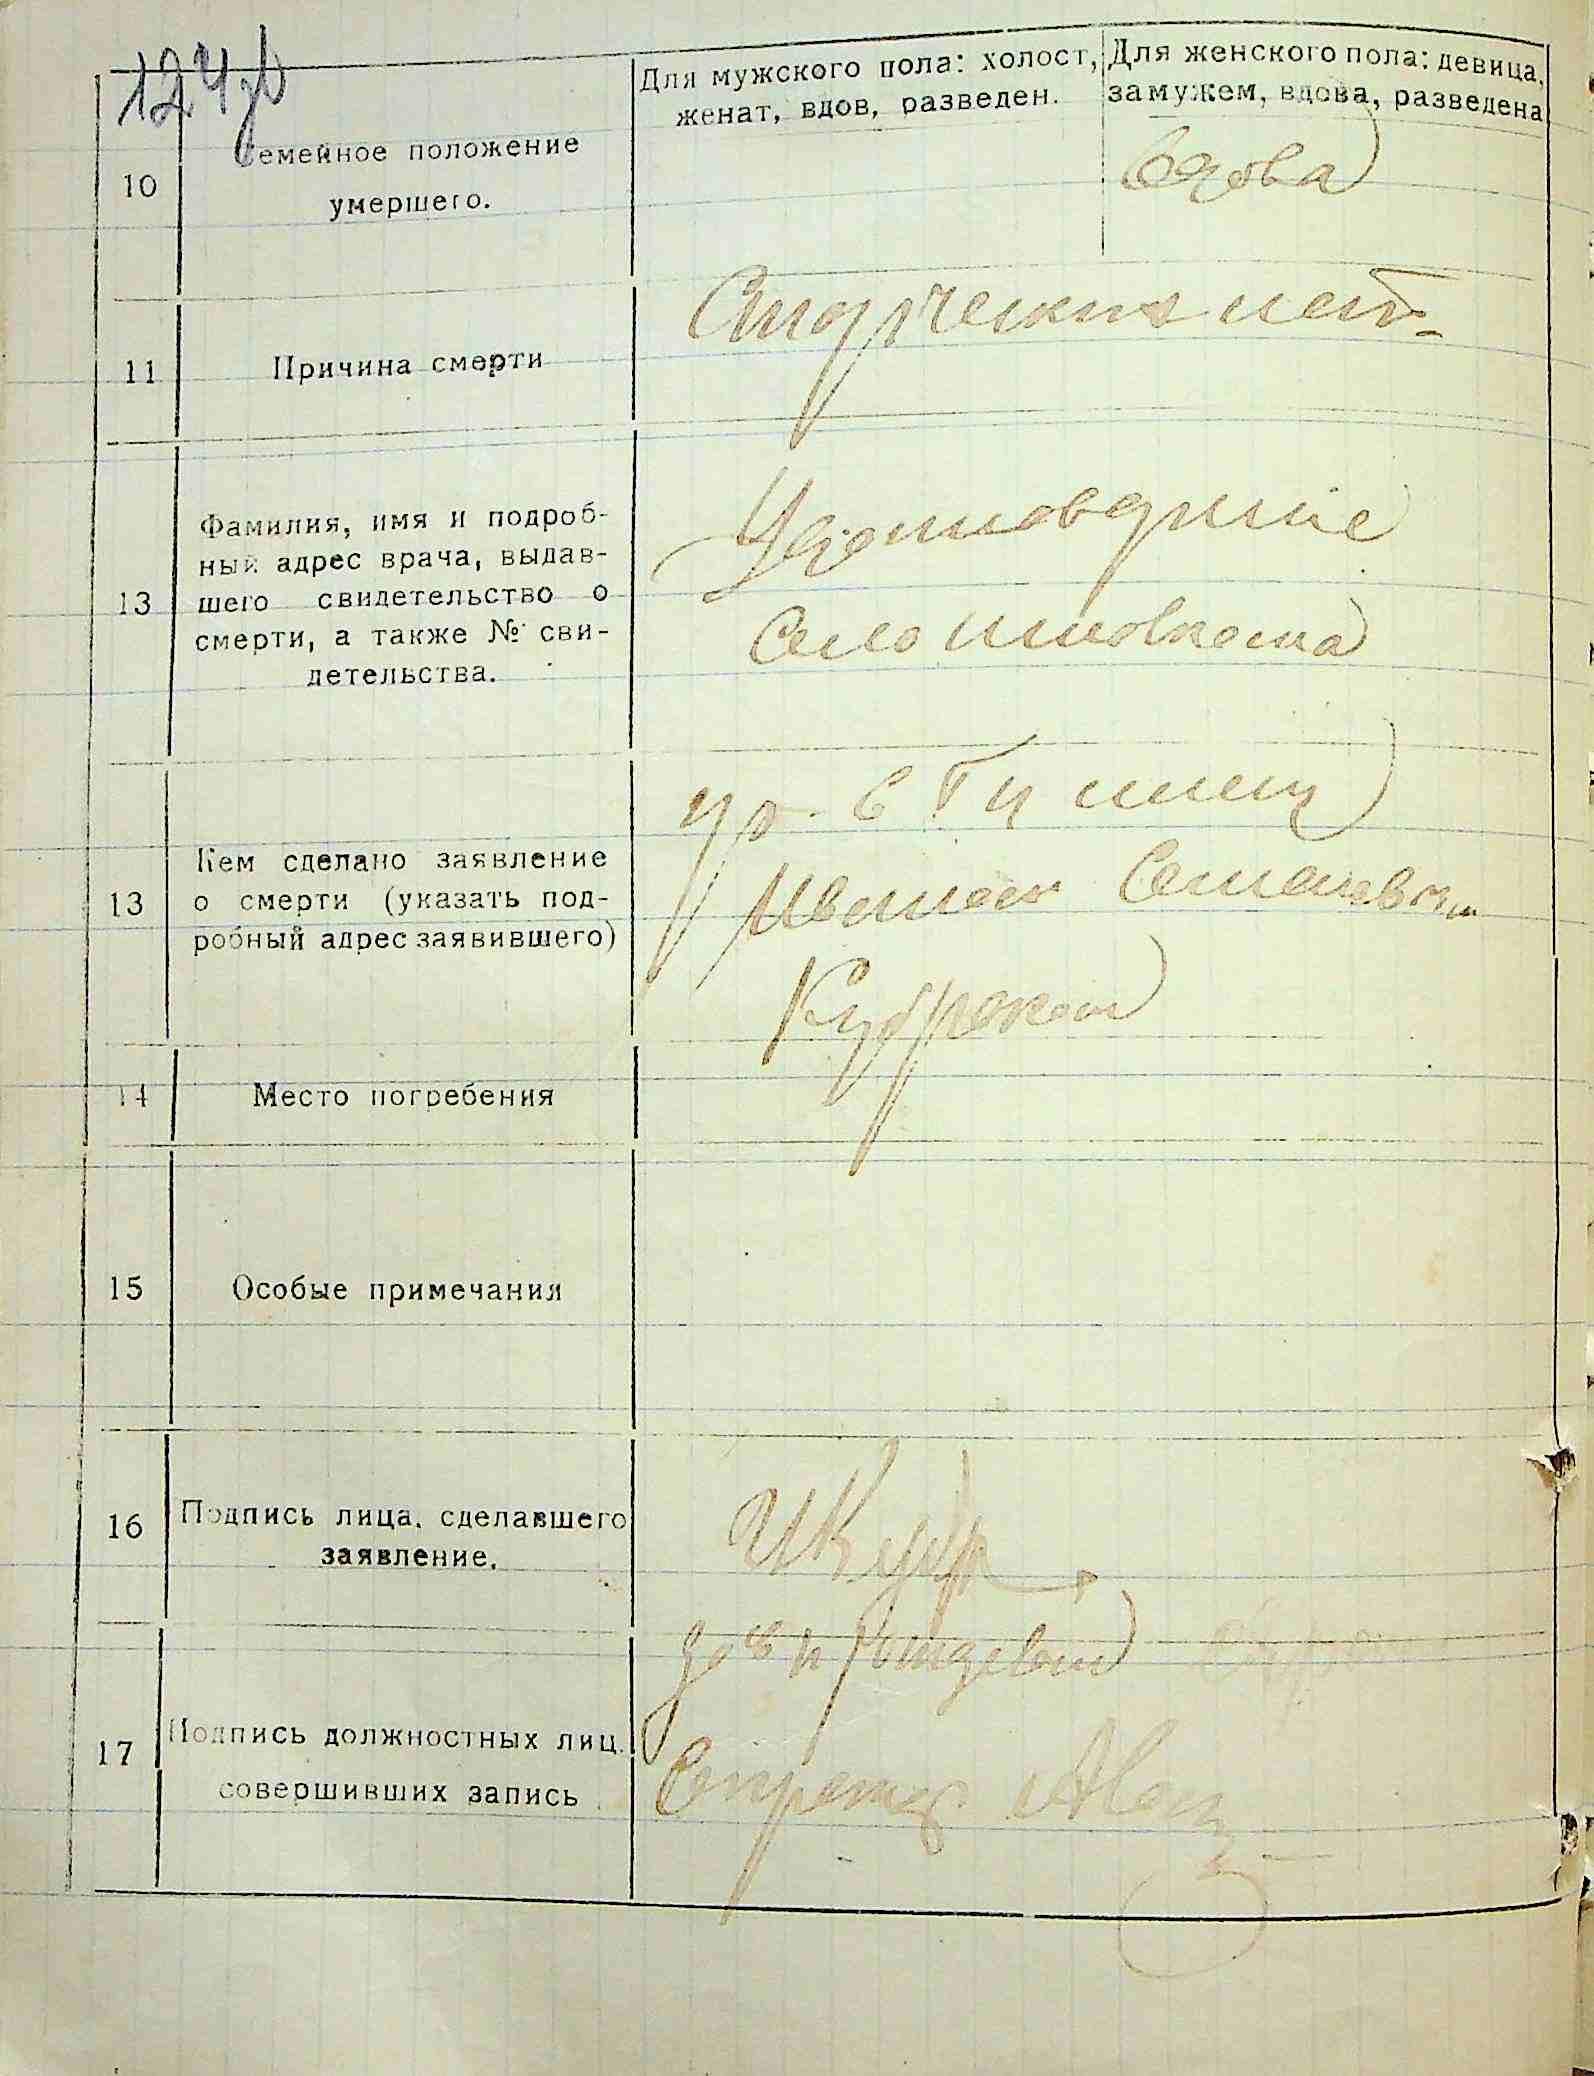 124 об
Для мужского пола: холост, женат, вдов, разведен.
Для женского пола: девица, замужем, вдова, разведена
10
Семейное положение
умершего.
вдова
11
Причина смерти
Старческих лет
13
Фамилия, имя и подроб-
ный адрес врача, выдав-
шего свидетельство о
смерти, а также № сви-
детельства.
Удостоверение
Сель
13
Кем сделано заявление
о смерти (указать под-
робный адрес заявившего)
гр. с
Иваном Семенович
14
Место погребения
15
Особые примечания
16
Подпись лица, сделавшего
заявление.
ИКудр
17
Подпись должностных лиц,
совершивших запись
Секретарь